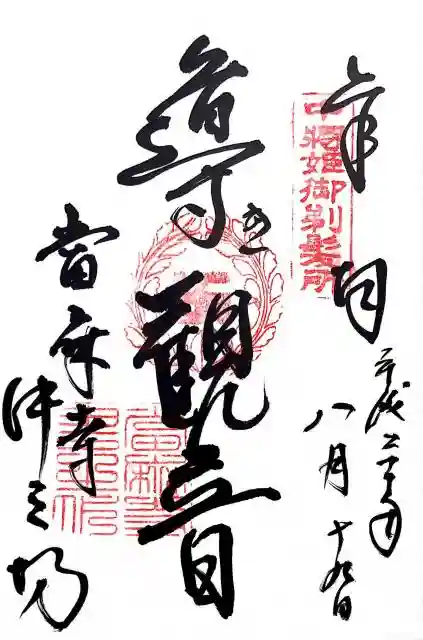 奉拝
中将姫御剃髪所
平成二十年
八月十九日
導き観音
當麻寺
中之坊